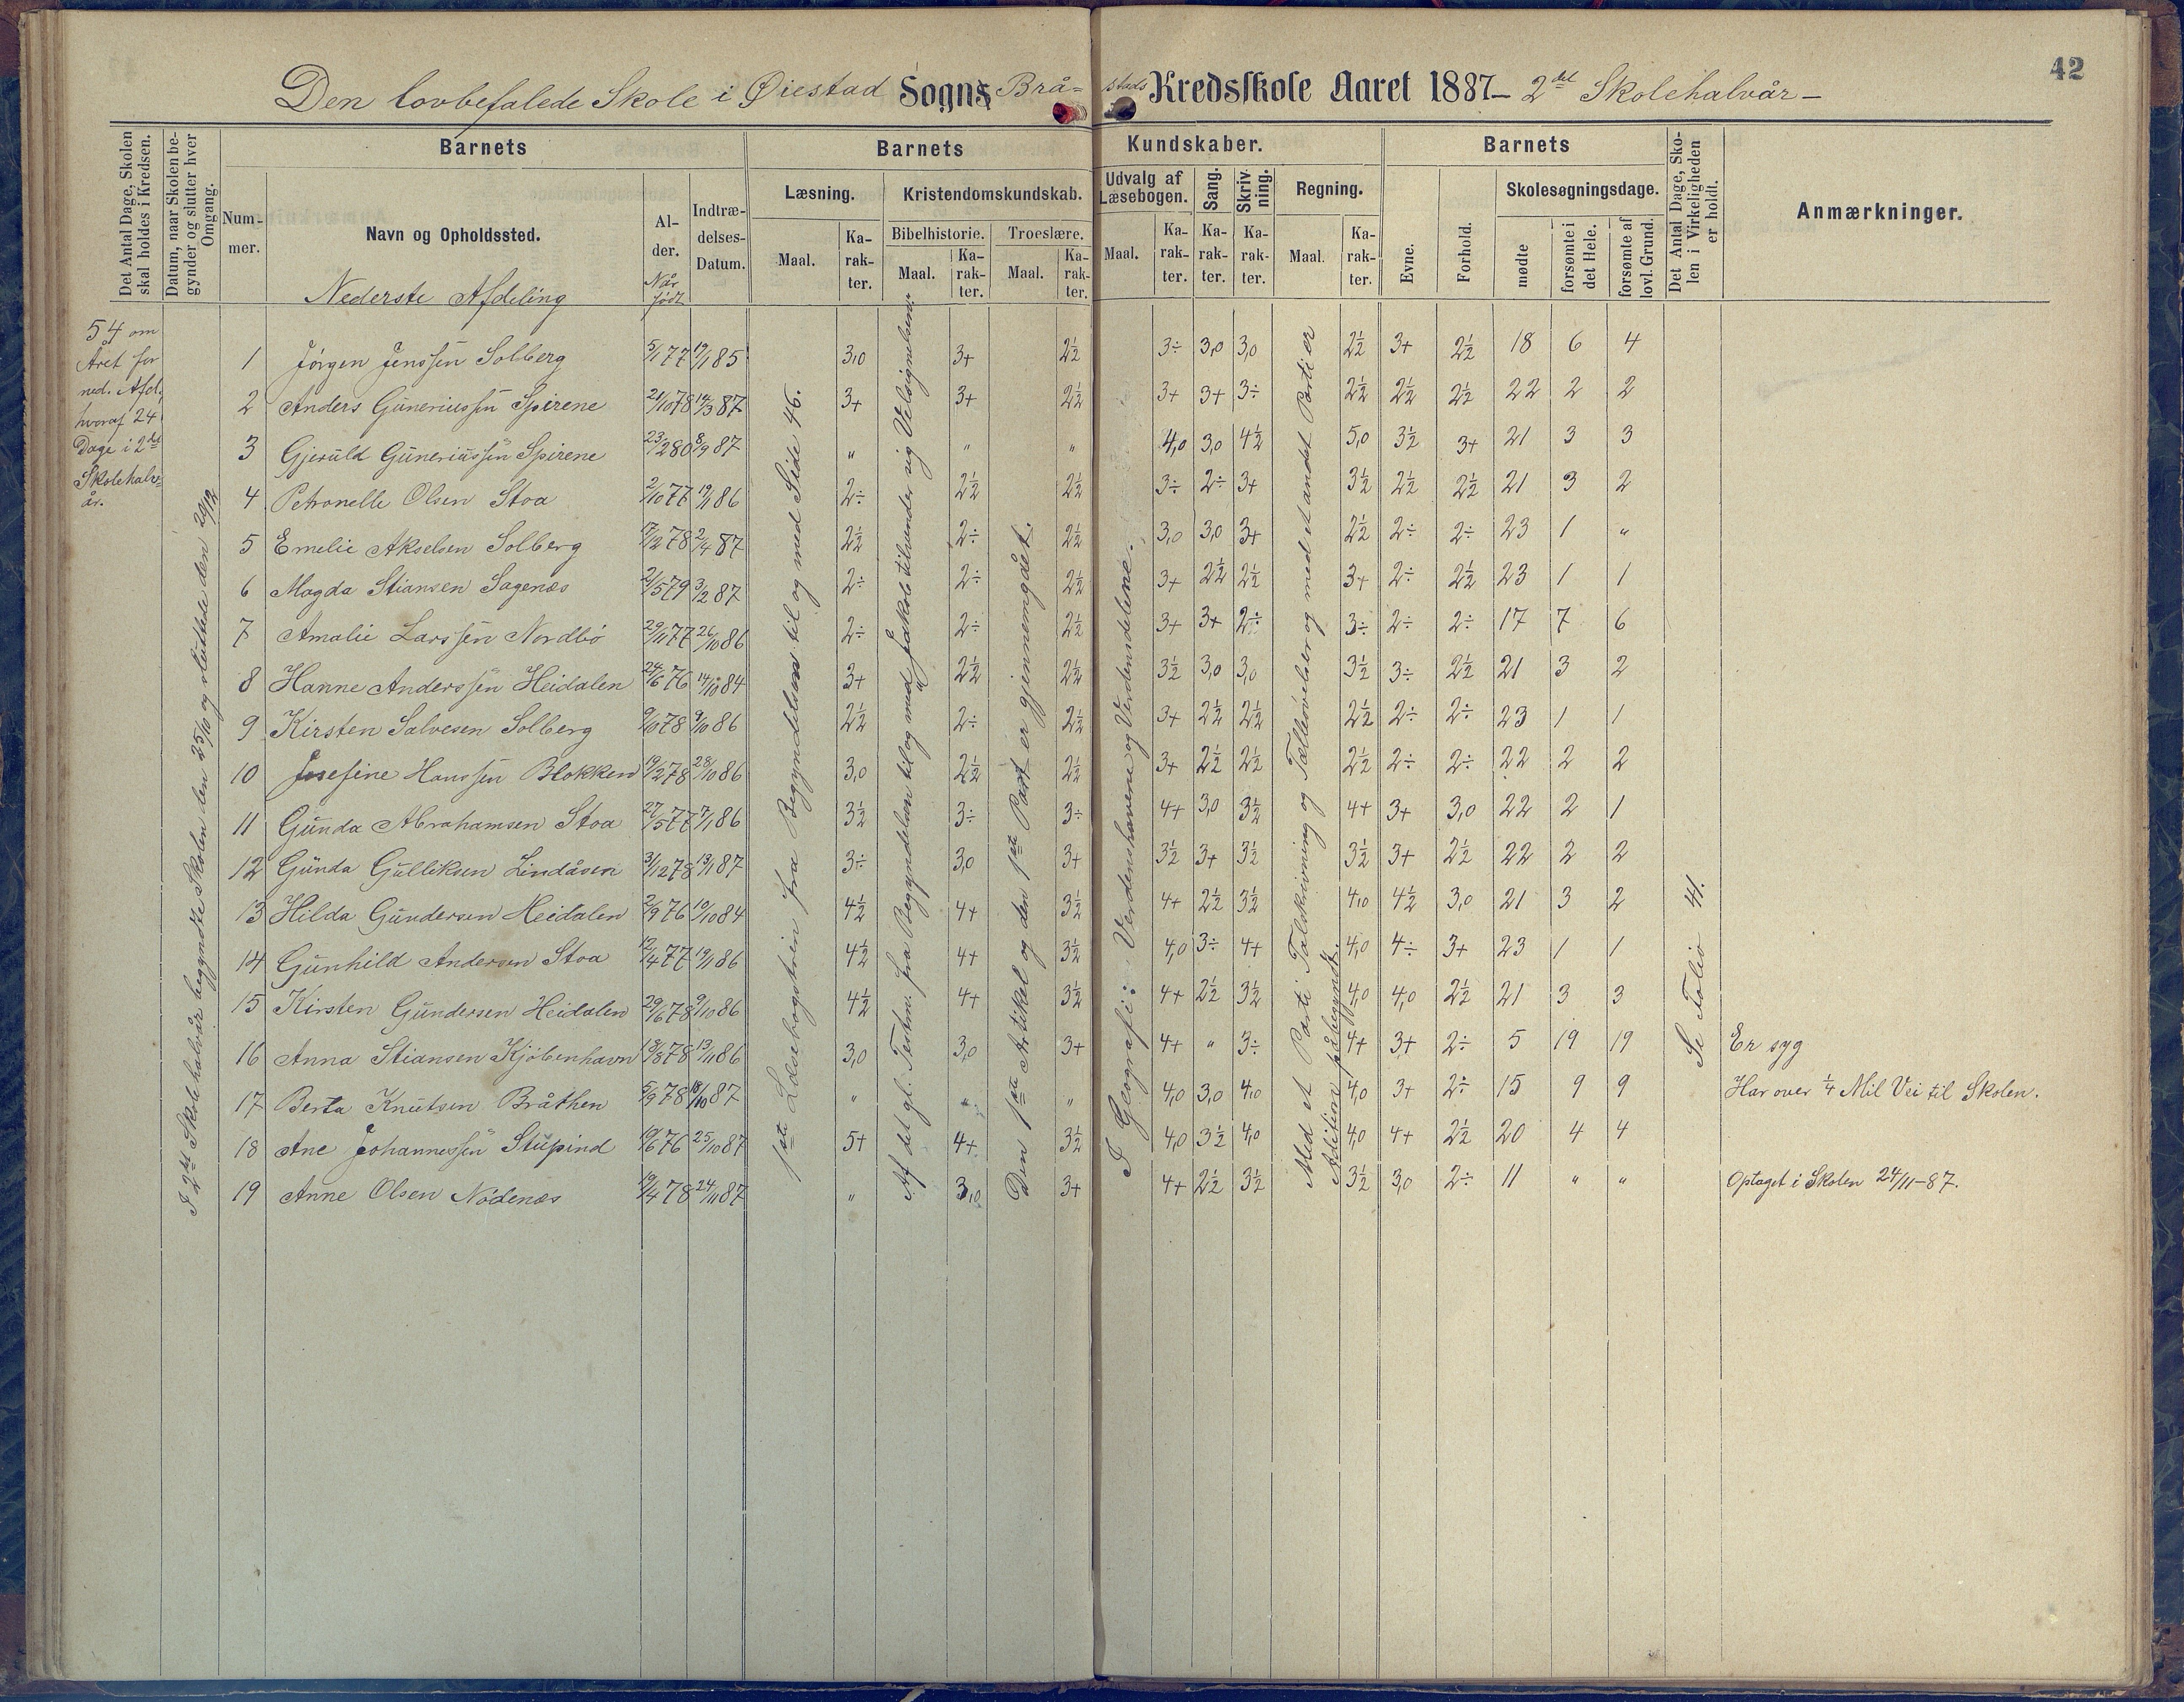 42
Den lovbefalede Skole i Øiestad Sogns Brå- stads Kredsskole Aaret 1887 – 2det Skolehalvår –
Det Antal Dage, Skolen skal holdes i Kredsen.
Datum, naar Skolen begynder og slutter hver Omgang.
Barnets
Num-mer.
Navn og Opholdssted.
Nederste Afdeling
Al-der.
Når født
Indtræ-delses-Datum.
Barnets Kundskaber.
Læsning.
Maal.
Ka-rak-ter.
Kristendomskundskab.
Bibelhistorie.
Maal.
Ka-rak-ter.
Troeslære.
Maal.
Ka-rak-ter.
Udvalg af Læsebogen.
Maal.
Ka-rak-ter.
Sang.
Ka-rak-ter.
Skriv-ning.
Ka-rak-ter.
Regning.
Maal.
Ka-rak-ter.
Barnets
Evne.
Forhold.
Skolesøgningsdage.
mødte
forsømte i det Hele.
forsømte af lovl. Grund.
Det Antal Dage, Skolen i Virkeligheden er holdt.
Anmærkninger.
54 om
Året for
ned. Afd.,
hvoraf 24
Dage i 2det
Skolehalv-
år.
I 2det Skolehalvår begyndte Skolen den 25/10 og sluttede den 20/12
1ste Læsebogstrin fra Begyndelsen til og med Side 46.
Af det gl. Testm. fra Begyndelsen til og med "Jakob tilvender sig Velsignelsen".
Den 1ste Artikel og den 1ste Part er gjennemgået.
I Geografi: Verdenshavene og Verdensdelene.
Med et Parti Talskrivning og Tælleøvelser og med et andet Parti er Adition påbegyndt.
Se Folio 41.
1 Jörgen Jenssen Solberg 5/1 77 19/1 85 3,0 3+ 2½ 3÷ 3,0 3,0 2½ 3+ 2½ 18 6 4
2 Anders Gunerius sen Spirene 21/10 78 14/3 87 3+ 3+ 2½ 3+ 3+ 3÷ 2½ 2½ 2½ 22 2 2
3 Gjeruld Guneriussen Spirene 23/2 80 8/9 87 " " " 4,0 3,0 4½ 5,0 3½ 3+ 21 3 3
4 Petronelle Olsen Stoa 2/10 77 19/1 86 2÷ 2½ 2½ 3÷ 2÷ 3+ 3½ 2½ 2½ 21 3 2
5 Emelie Akselsen Solberg 17/12 78 2/4 87 2½ 2÷ 2½ 3,0 3,0 3+ 2½ 2÷ 2÷ 23 1 "
6 Magda Stiansen Sagenæs 21/5 79 3/2 87 2÷ 2÷ 2½ 3+ 2½ 2½ 3+ 2÷ 2½ 23 1 1
7 Amalie Larssen Nordbö 29/11 77 26/10 86 2÷ 2÷ 2½ 3+ 3+ 2÷ 3÷ 2÷ 2÷ 17 7 6
8 Hanne Anderssen Heidalen 24/6 76 14/10 84 3+ 2½ 2½ 3½ 3,0 3,0 3½ 3÷ 2½ 21 3 2
9 Kirsten Salvesen Solberg 9/10 78 9/10 86 2½ 2÷ 2½ 3+ 2½ 2½ 2½ 2÷ 2÷ 23 1 1
10 Josefine Hanssen Blokken 19/2 78 28/10 86 3,0 2½ 2½ 3+ 2½ 2½ 2½ 2÷ 2÷ 22 2 2
11 Gunda Abrahamsen Stoa 27/5 77 7/1 86 3½ 3÷ 3÷ 4+ 3,0 3½ 4+ 3+ 3,0 22 2 1
12 Gunda Gulliksen Lindåsen 31/12 78 13/1 87 3÷ 3,0 3+ 3½ 3+ 3½ 3½ 3+ 2½ 22 2 2
13 Hilda Gundersen Heidalen 2/9 76 10/10 84 4½ 4+ 3½ 4+ 2½ 3½ 4,0 4½ 3,0 21 3 2
14 Gunhild Andersen Stoa 12/4 77 19/1 86 4½ 4+ 3½ 4,0 3÷ 4+ 4,0 4÷ 3+ 23 1 1
15 Kirsten Gundersen Heidalen 29/6 78 9/10 86 4½ 4+ 3½ 4+ 2½ 3½ 4,0 4,0 2½ 21 3 3
16 Anna Stiansen Kjöbenhavn 13/3 78 13/11 86 3,0 3,0 3+ 4+ " 3÷ 4+ 3+ 2÷ 5 19 19 Er syg
17 Berta Knutsen Bråthen 5/9 78 18/10 87 " " " 4,0 3,0 4,0 4,0 3+ 2÷ 15 9 9 Har over ¼ Mil Vei til Skolen.
18 Ane Johannessen Stupind 19/6 76 25/10 87 5+ 4+ 3½ 4,0 3½ 4,0 4,0 4+ 2½ 20 4 4
19 Anne Olsen Nödenæs 19/4 78 24/11 87 " 3,0 3+ 4+ 2½ 3½ 3½ 3,0 2÷ 11 " " Optaget i Skolen 24/11-87.